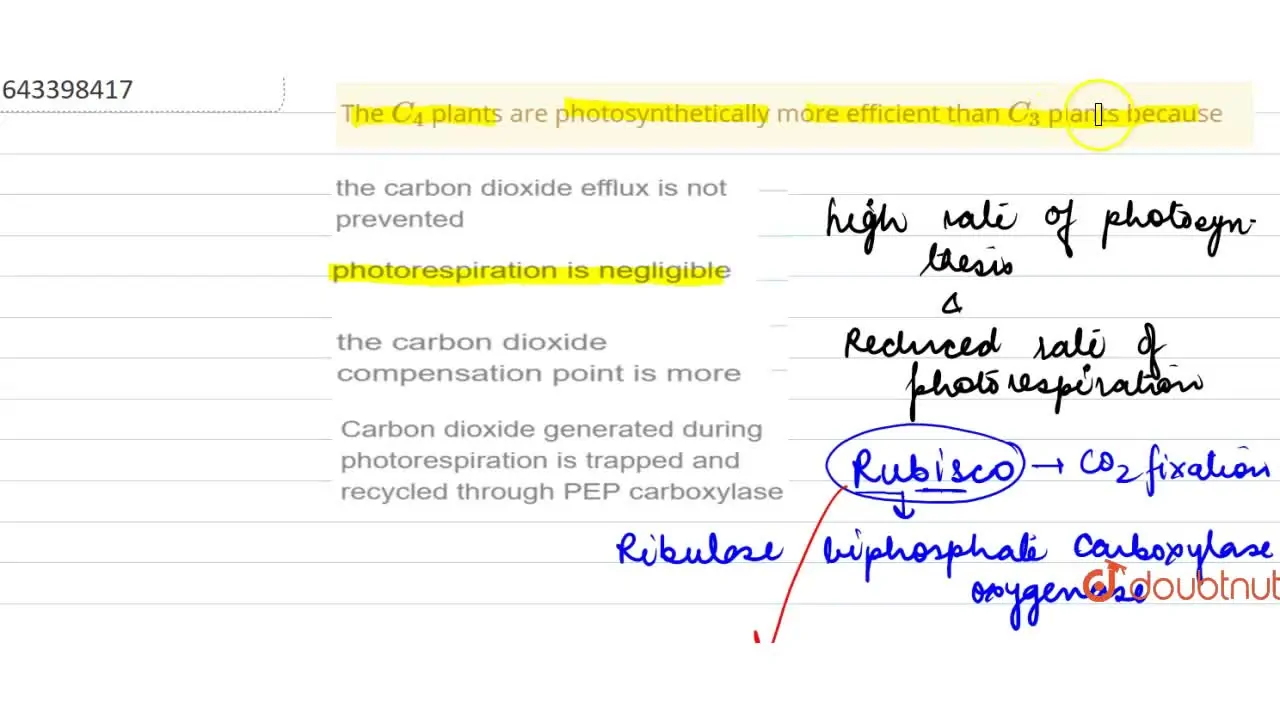 643398417
The C₄ plants are photosynthetically more efficient than C₃ plants because
the carbon dioxide efflux is not
prevented
photorespiration is negligible
the carbon dioxide
compensation point is more
Carbon dioxide generated during
photorespiration is trapped and
recycled through PEP carboxylase
high rate of photosyn-
thesis
&
Reduced rate of
photorespiration
Rubisco → CO2 fixation
Ribulose biphosphate carboxylase
oxygenase
doubtnut